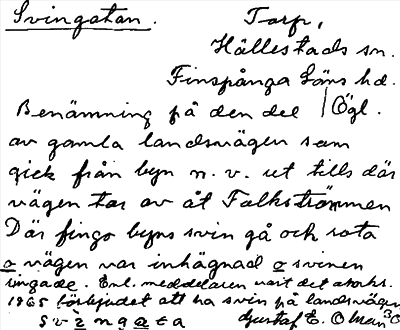 Svingatan. Torp,
Hällestads sn.
Finspånga läns hd.
Benämning på den del Ögl.
av gamla landsvägen som
gick från byn n. v. ut tills där
vägen tar av åt Falkströmmen
Där fingo byns svin gå och rota
o vägen var inhägnad o svinen
ringade. Enl. meddelaren vart det
1865 förbjudet att ha svin på landsvägen
svìngata Gustaf E. Oman 30